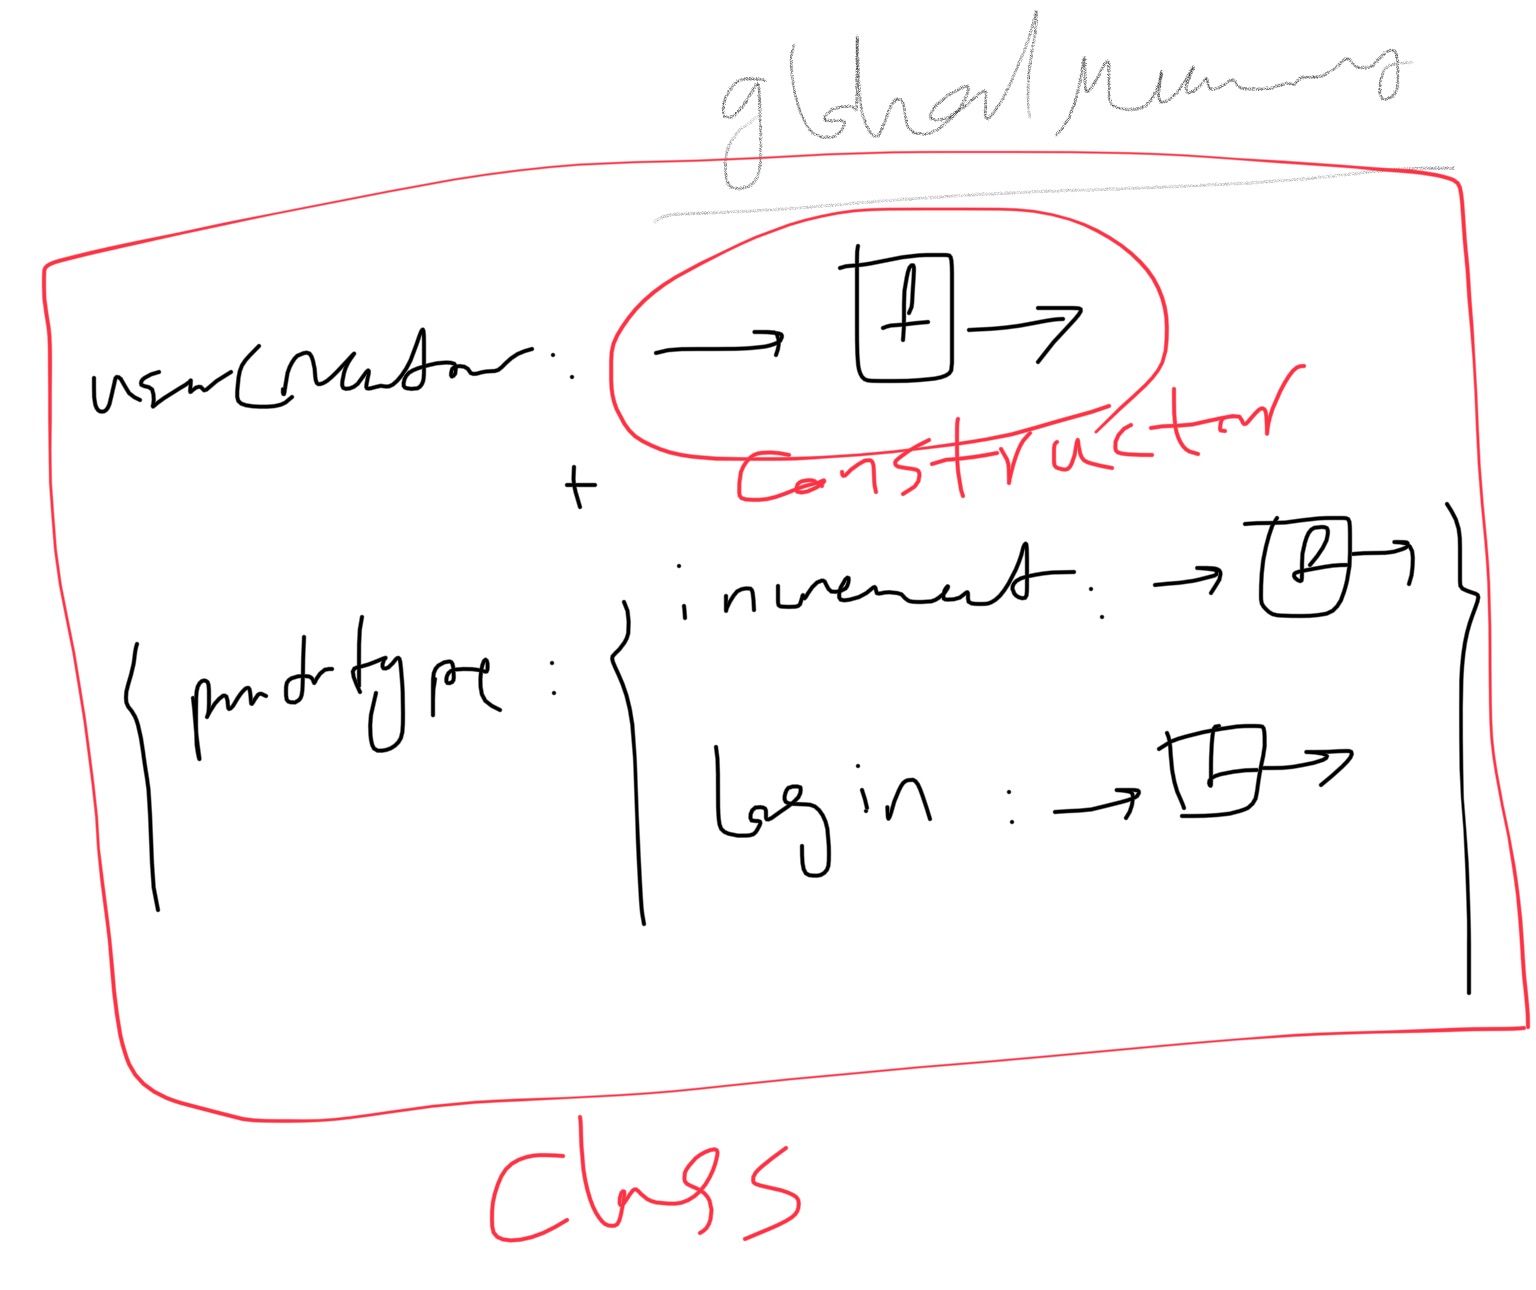 global Memory
userCreator : → f →
constructor
+
{ prototype : { increment : → f → }
login : → f →
class